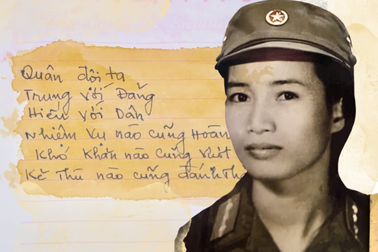 Quân đội ta
Trung với Đảng
Hiếu với Dân
Nhiệm vụ nào cũng Hoàn
Khó Khăn nào cũng vượt
Kẻ Thù nào cũng đánh Th